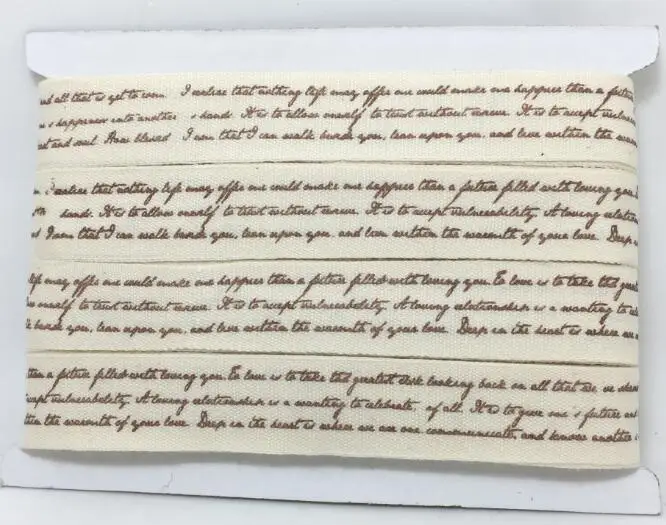 all that is yet to come. I realize that nothing life may offer me could make me happier than a future
s happiness into another s hands. It is to allow oneself to trust without reserve. It is to accept
and soul. How blessed I am that I can walk beside you, lean upon you, and live within the warm
I realize that nothing life may offer me could make me happier than a future filled with loving you.
hands. It is to allow oneself to trust without reserve. It is to accept vulnerability. A loving relation
I am that I can walk beside you, lean upon you, and live within the warmth of your love. Deep
life may offer me could make me happier than a future filled with loving you. To love is to take the great
oneself to trust without reserve. It is to accept vulnerability. A loving relationship is a wanting to
beside you, lean upon you, and live within the warmth of your love. Deep in the heart is where we
than a future filled with loving you. To love is to take the greatest risk looking back on all that we ve shared
accept vulnerability. A loving relationship is a wanting to celebrate, of all. It is to give one s future and
the warmth of your love. Deep in the heart is where we are one communicate, and know another